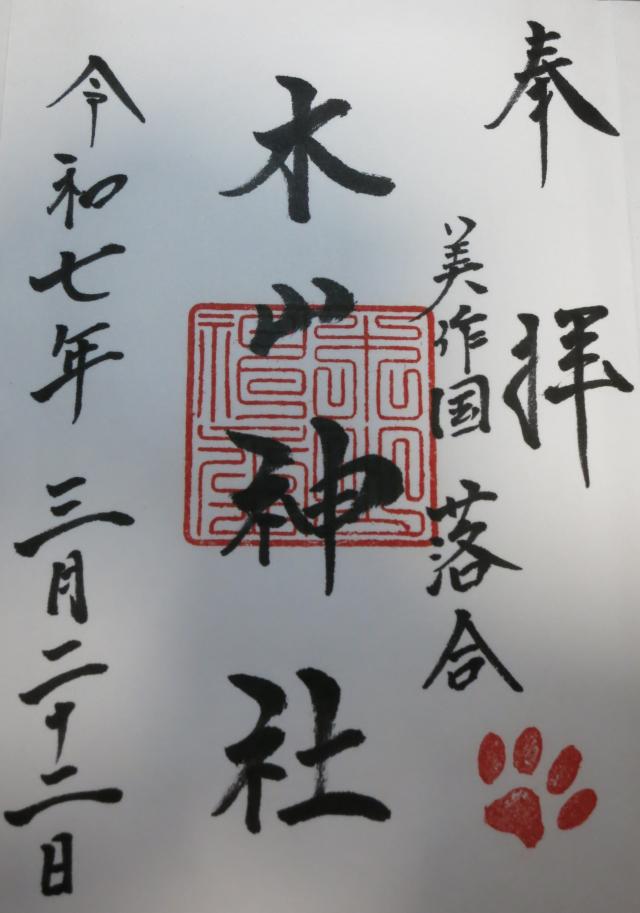 奉拝
美作国 落合
木山神社
令和七年 三月二十二日